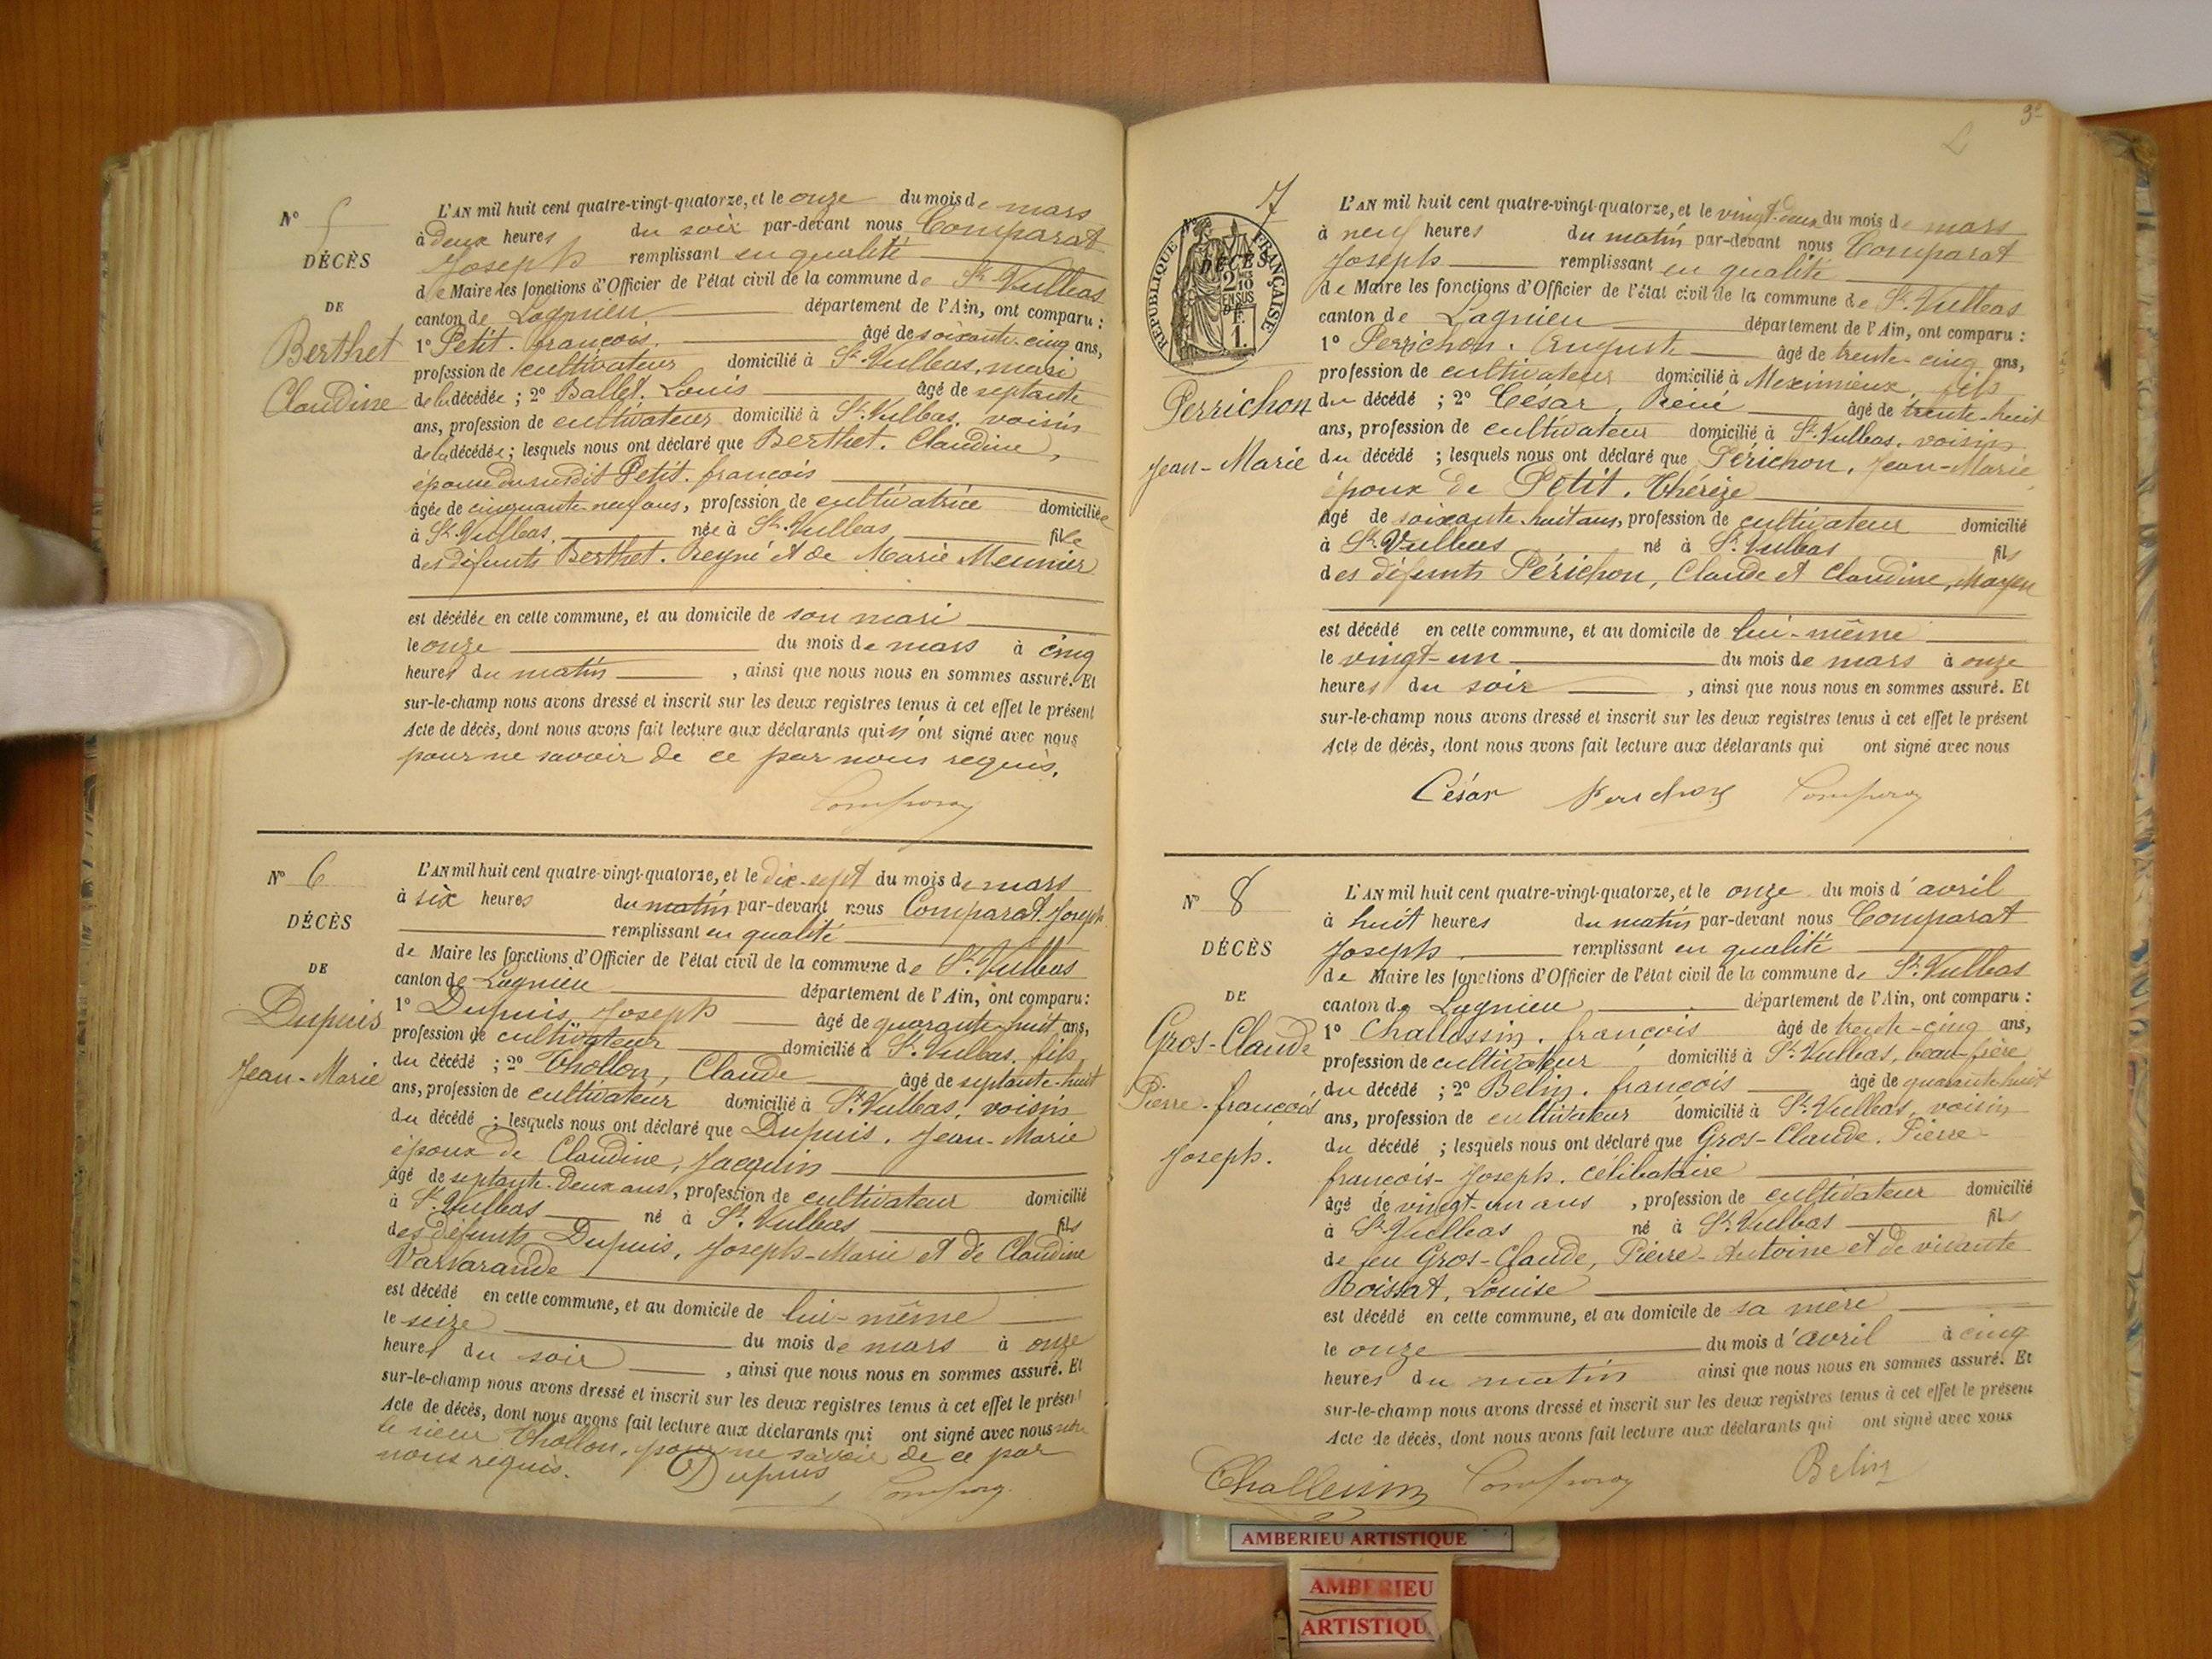 N° 5
DÉCÈS
DE
Berthet
Claudine
L'AN mil huit cent quatre-vingt-quatorze, et le onze du mois de mars
à deux heures du soir par-devant nous Comparat
Joseph remplissant en qualité
de Maire les fonctions d'Officier de l'état civil de la commune de St Vulbas
canton de Lagnieu département de l'Ain, ont comparu :
1° Petit. françois, âgé de soixante-cinq ans,
profession de cultivateur domicilié à St Vulbas, mari
de la décédée ; 2° Ballet, Louis âgé de septante
ans, profession de cultivateur domicilié à St Vulbas, voisin
de la décédée ; lesquels nous ont déclaré que Berthet. Claudine,
épouse du susdit Petit. françois
âgée de cinquante neuf ans, profession de cultivatrice domiciliée
à St Vulbas, née à St Vulbas fille
des défunts Berthet. Reyné et de Marie Meunier
est décédée en cette commune, et au domicile de son mari
le onze du mois de mars à cinq
heures du matin , ainsi que nous nous en sommes assuré. Et
sur-le-champ nous avons dressé et inscrit sur les deux registres tenus à cet effet le présent
Acte de décès, dont nous avons fait lecture aux déclarants qui n'ont signé avec nous
pour ne savoir de ce par nous requis.
Comparat
N° 6
DÉCÈS
DE
Dupuis
Jean-Marie
L'AN mil huit cent quatre-vingt-quatorze, et le dix-sept du mois de mars
à six heures du matin par-devant nous Comparat Joseph
remplissant en qualité
de Maire les fonctions d'Officier de l'état civil de la commune de St Vulbas
canton de Lagnieu département de l'Ain, ont comparu :
1° Dupuis, Joseph âgé de quarante-huit ans,
profession de cultivateur domicilié à St Vulbas, fils
du décédé ; 2° Chollon, Claude âgé de septante-huit
ans, profession de cultivateur domicilié à St Vulbas, voisin
du décédé ; lesquels nous ont déclaré que Dupuis. Jean-Marie
époux de Claudine, Jacquin
âgé de septante-deux ans, profession de cultivateur domicilié
à St Vulbas né à St Vulbas fils
des défunts Dupuis, Joseph-Marie et de Claudine
Varvarande
est décédé en cette commune, et au domicile de lui-même
le seize du mois de mars à onze
heures du soir , ainsi que nous nous en sommes assuré. Et
sur-le-champ nous avons dressé et inscrit sur les deux registres tenus à cet effet le présent
Acte de décès, dont nous avons fait lecture aux déclarants qui ont signé avec nous non
le sieur Chollon, pour ne savoir de ce par
nous requis.
Dupuis Comparat
3e
7
RÉPUBLIQUE FRANÇAISE
DÉCÈS
2/10 EN SUS
1.
Perrichon
Jean-Marie
L'AN mil huit cent quatre-vingt-quatorze, et le vingt-deux du mois de mars
à neuf heures du matin par-devant nous Comparat
Joseph remplissant en qualité
de Maire les fonctions d'Officier de l'état civil de la commune de St Vulbas
canton de Lagnieu département de l'Ain, ont comparu :
1° Perrichon. Auguste âgé de trente-cinq ans,
profession de cultivateur domicilié à Meximieux, fils
du décédé ; 2° César, René âgé de trente-huit
ans, profession de cultivateur domicilié à St Vulbas. voisin
du décédé ; lesquels nous ont déclaré que Périchon. Jean-Marie
époux de Petit. Thérèze
âgé de soixante-huit ans, profession de cultivateur domicilié
à St Vulbas né à St Vulbas fils
des défunts Périchon, Claude et Claudine, Moyen
est décédé en cette commune, et au domicile de lui-même
le vingt-un du mois de mars à onze
heures du soir , ainsi que nous nous en sommes assuré. Et
sur-le-champ nous avons dressé et inscrit sur les deux registres tenus à cet effet le présent
Acte de décès, dont nous avons fait lecture aux déclarants qui ont signé avec nous
César Perrichon Comparat
N° 8
DÉCÈS
DE
Gros-Claude
Pierre-françois
Joseph.
L'AN mil huit cent quatre-vingt-quatorze, et le onze du mois d'avril
à huit heures du matin par-devant nous Comparat
Joseph remplissant en qualité
de Maire les fonctions d'Officier de l'état civil de la commune de St Vulbas
canton de Lagnieu département de l'Ain, ont comparu :
1° Challossin. françois âgé de trente-cinq ans,
profession de cultivateur domicilié à St Vulbas, beau-frère
du décédé ; 2° Belin. françois âgé de quarante-huit
ans, profession de cultivateur domicilié à St Vulbas, voisin
du décédé ; lesquels nous ont déclaré que Gros-Claude. Pierre
françois-Joseph. célibataire
âgé de vingt-un ans , profession de cultivateur domicilié
à St Vulbas né à St Vulbas fils
de feu Gros-Claude, Pierre-Antoine et de vivante
Boissat, Louise
est décédé en cette commune, et au domicile de sa mère
le onze du mois d'avril à cinq
heures du matin ainsi que nous nous en sommes assuré. Et
sur-le-champ nous avons dressé et inscrit sur les deux registres tenus à cet effet le présent
Acte de décès, dont nous avons fait lecture aux déclarants qui ont signé avec nous
Comparat Belin
AMBERIEU ARTISTIQUE
AMBERIEU
ARTISTIQU